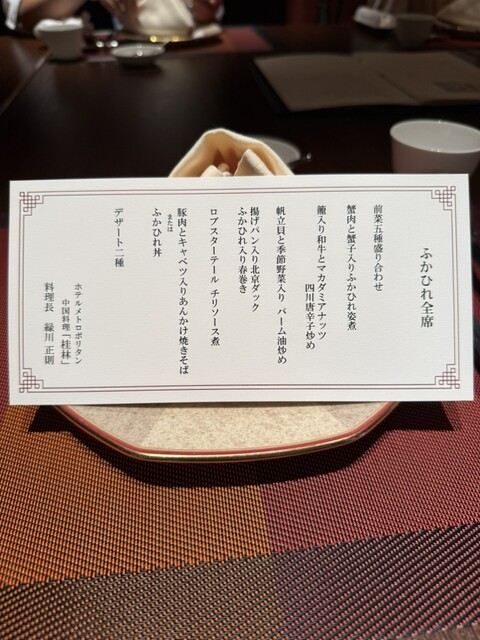 ふかひれ全席
前菜五種盛り合わせ
蟹肉と蟹子入りふかひれ姿煮
龍入り和牛とマカダミアナッツ
四川唐辛子炒め
帆立貝と季節野菜入り パーム油炒め
揚げパン入り北京ダック
ふかひれ入り春巻き
ロブスターテール チリソース煮
豚肉とキャベツ入りあんかけ焼きそば
または
ふかひれ丼
デザート二種
ホテルメトロポリタン
中国料理「桂林」
料理長 緑川 正則